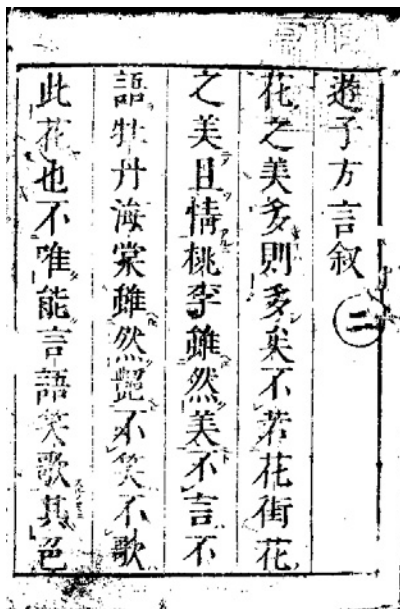 遊子方言叙
二
花之美多則多矣不若花街花
之美且情桃李雖然美不言不
語牡丹海棠雖然艷不笑不歌
此花也不唯能言語笑歌其色